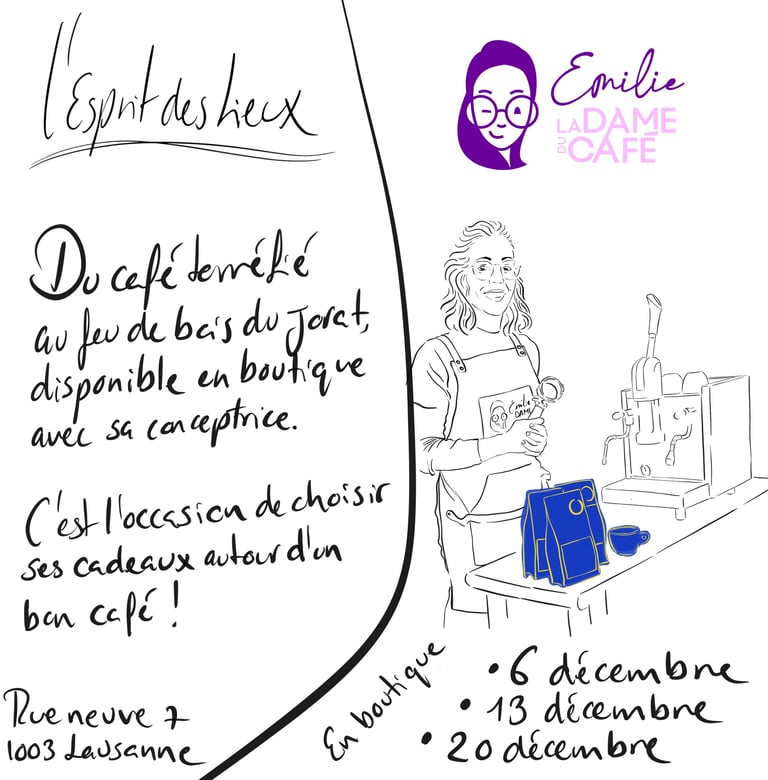 l'Esprit des Lieux
Du café torréfié
au feu de bois du Jorat,
disponible en boutique
avec sa conceptrice.
C'est l'occasion de choisir
ses cadeaux autour d'un
bon café !
Rue neuve 7
1003 Lausanne
Emilie
LA DAME
DU CAFÉ
Emilie
DAME
En boutique
• 6 décembre
• 13 décembre
• 20 décembre